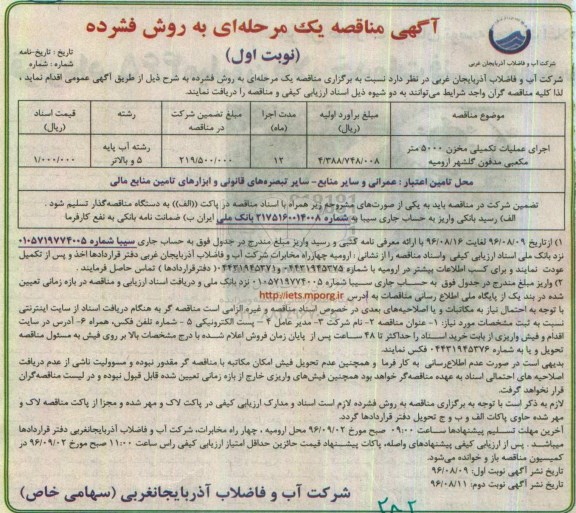 آگهی مناقصه یک مرحله‌ای به روش فشرده
(نوبت اول)
تاریخ : تاریخ-نامه
شماره : شماره
شرکت آب و فاضلاب آذربایجان غربی
شرکت آب و فاضلاب آذربایجان غربی در نظر دارد نسبت به برگزاری مناقصه یک مرحله‌ای به روش فشرده به شرح ذیل از طریق آگهی عمومی اقدام نماید ،
لذا کلیه مناقصه گران واجد شرایط می‌توانند به دو شیوه ذیل اسناد ارزیابی کیفی و مناقصه را دریافت نمایند.
موضوع مناقصه | مبلغ برآورد اولیه (ریال) | مدت اجرا (ماه) | مبلغ تضمین شرکت در مناقصه | رشته | قیمت اسناد (ریال)
اجرای عملیات تکمیلی مخزن ۵۰۰۰ متر مکعبی مدفون گلشهر ارومیه | ۴/۳۸۸/۷۴۸/۰۰۸ | ۱۲ | ۲۱۹/۵۰۰/۰۰۰ | رشته آب پایه ۵ و بالاتر | ۱/۰۰۰/۰۰۰
محل تامین اعتبار : عمرانی و سایر منابع- سایر تبصره‌های قانونی و ابزارهای تامین منابع مالی
تضمین شرکت در مناقصه باید به یکی از صورت‌های مشروحه زیر همراه با اسناد مناقصه در پاکت ((الف)) به دستگاه مناقصه‌گذار تسلیم شود .
الف) رسید بانکی واریز به حساب جاری سیبا به شماره ۲۱۷۵۱۶۰۰۱۴۰۰۸ بانک ملی ایران ب) ضمانت نامه بانکی به نفع کارفرما
۱) از تاریخ ۹۶/۰۸/۰۹ لغایت ۹۶/۰۸/۱۶ با ارائه معرفی نامه کتبی و رسید واریز مبلغ مندرج در جدول فوق به حساب جاری سیبا شماره ۰۱۰۵۷۱۹۷۷۴۰۰۵
نزد بانک ملی اسناد ارزیابی کیفی واسناد مناقصه را از نشانی : ارومیه چهارراه مخابرات شرکت آب و فاضلاب آذربایجان غربی دفتر قراردادها اخذ و پس از تکمیل
عودت نمایند و برای کسب اطلاعات بیشتر در ارومیه با شماره ۰۴۴۳۱۹۴۵۳۷۵ و ۰۴۴۳۱۹۴۵۳۷۱( دفترقراردادها ) تماس حاصل فرمایند .
۲) واریز مبلغ مندرج در جدول فوق به حساب جاری سیبا شماره ۰۱۰۵۷۱۹۷۷۴۰۰۵ نزد بانک ملی و دریافت اسناد ارزیابی و مناقصه در بازه زمانی تعیین
شده در بند یک از پایگاه ملی اطلاع رسانی مناقصات به آدرس http://iets.mporg.ir
با توجه به احتمال نیاز به مکاتبات و یا اصلاحیه‌های بعدی در خصوص اسناد مناقصه و غیره الزامی است مناقصه گر به هنگام دریافت اسناد از سایت اینترنتی
نسبت به ثبت مشخصات مورد نیاز: ۱- عنوان مناقصه ۲- نام شرکت ۳- مدیر عامل ۴ – پست الکترونیکی ۵ – شماره تلفن فکس، همراه ۶- آدرس در سایت
اقدام و فیش واریزی از بابت خرید اسناد را حداکثر تا ۴۸ ساعت پس از پایان زمان فروش اعلام شده با درج مشخصات بالا بر روی فیش به مسئول مناقصه
تحویل و یا به شماره ۰۴۴۳۱۹۴۵۳۷۶ فکس نمایند.
بدیهی است در صورت عدم اطلاع‌رسانی به کار فرما و همچنین عدم تحویل فیش امکان مکاتبه با مناقصه گر مقدور نبوده و مسوولیت ناشی از عدم دریافت
اصلاحیه های احتمالی اسناد به عهده مناقصه‌گر خواهد بود همچنین فیش‌های واریزی خارج از بازه زمانی تعیین شده قابل قبول نبوده و در لیست مناقصه‌گران
قرار نخواهد گرفت.
لازم به ذکر است با توجه به برگزاری مناقصه به روش فشرده لازم است اسناد و مدارک ارزیابی کیفی در پاکت لاک و مهر شده و مجزا از پاکت مناقصه لاک و
مهر شده حاوی پاکات الف و ب و ج تحویل دفتر قراردادها گردد.
آخرین مهلت تسلیم پیشنهادها ساعت ۰۹:۰۰ صبح مورخ ۹۶/۰۹/۰۲ محل ارومیه ، چهار راه مخابرات، شرکت آب و فاضلاب آذربایجانغربی دفتر قراردادها
میباشد . پس از ارزیابی کیفی پیشنهادهای واصله، پاکات پیشنهاد قیمت حائزین حداقل امتیاز ارزیابی کیفی راس ساعت ۱۱:۰۰ صبح مورخ ۹۶/۰۹/۰۲ در
کمیسیون مناقصه باز و خوانده می‌شود.
تاریخ نشر آگهی نوبت اول: ۹۶/۰۸/۰۹
تاریخ نشر آگهی نوبت دوم: ۹۶/۰۸/۱۱
شرکت آب و فاضلاب آذربایجانغربی (سهامی خاص)